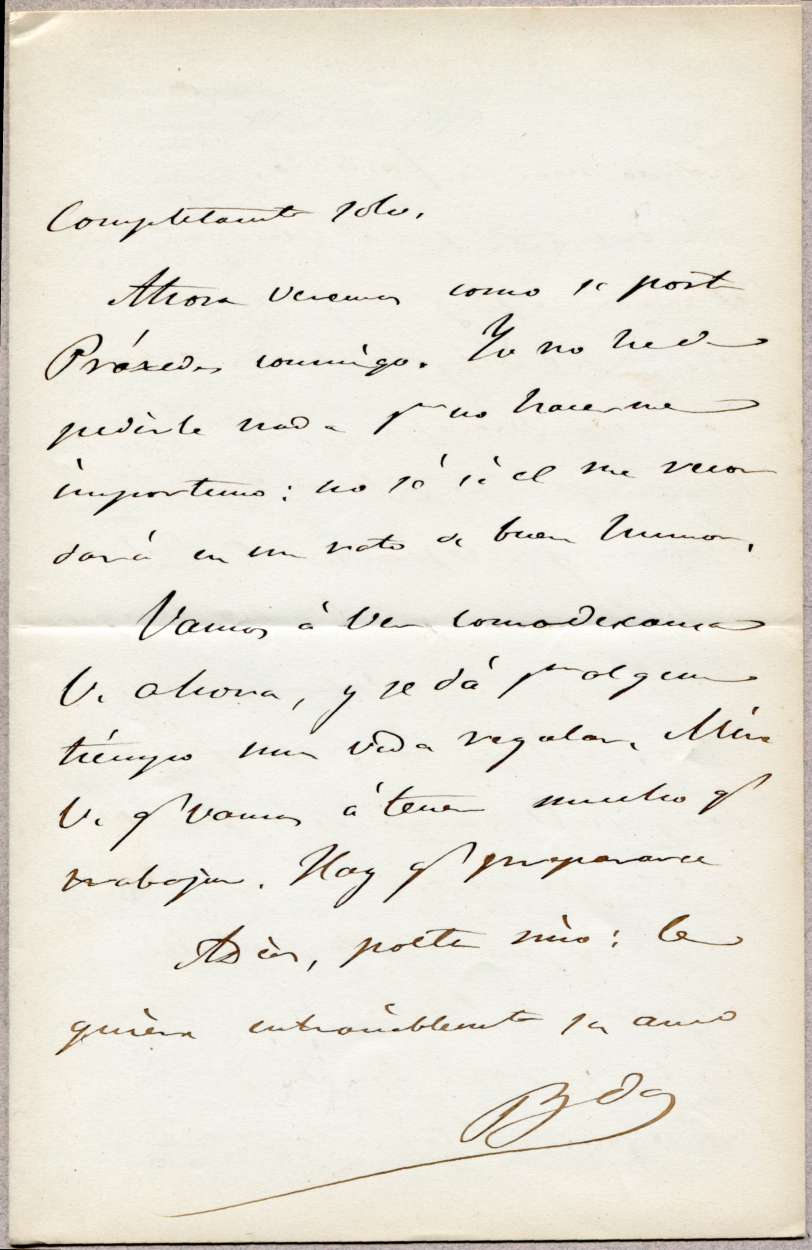 Completamente solo.
Ahora veremos como se porta
Práxedes conmigo. Yo no he de
pedirle nada pr no hacerme
importuno: no sé si él me recor
dará en un rato de buen humor.
Vamos á ver como descansa
V. ahora, y se dá pr algun
tiempo una vida regalar. Mire
V. q vamos á tener mucho q
trabajar. Hay q prepararse
Adios, poeta mio: le
quiere entrañablemente su amo